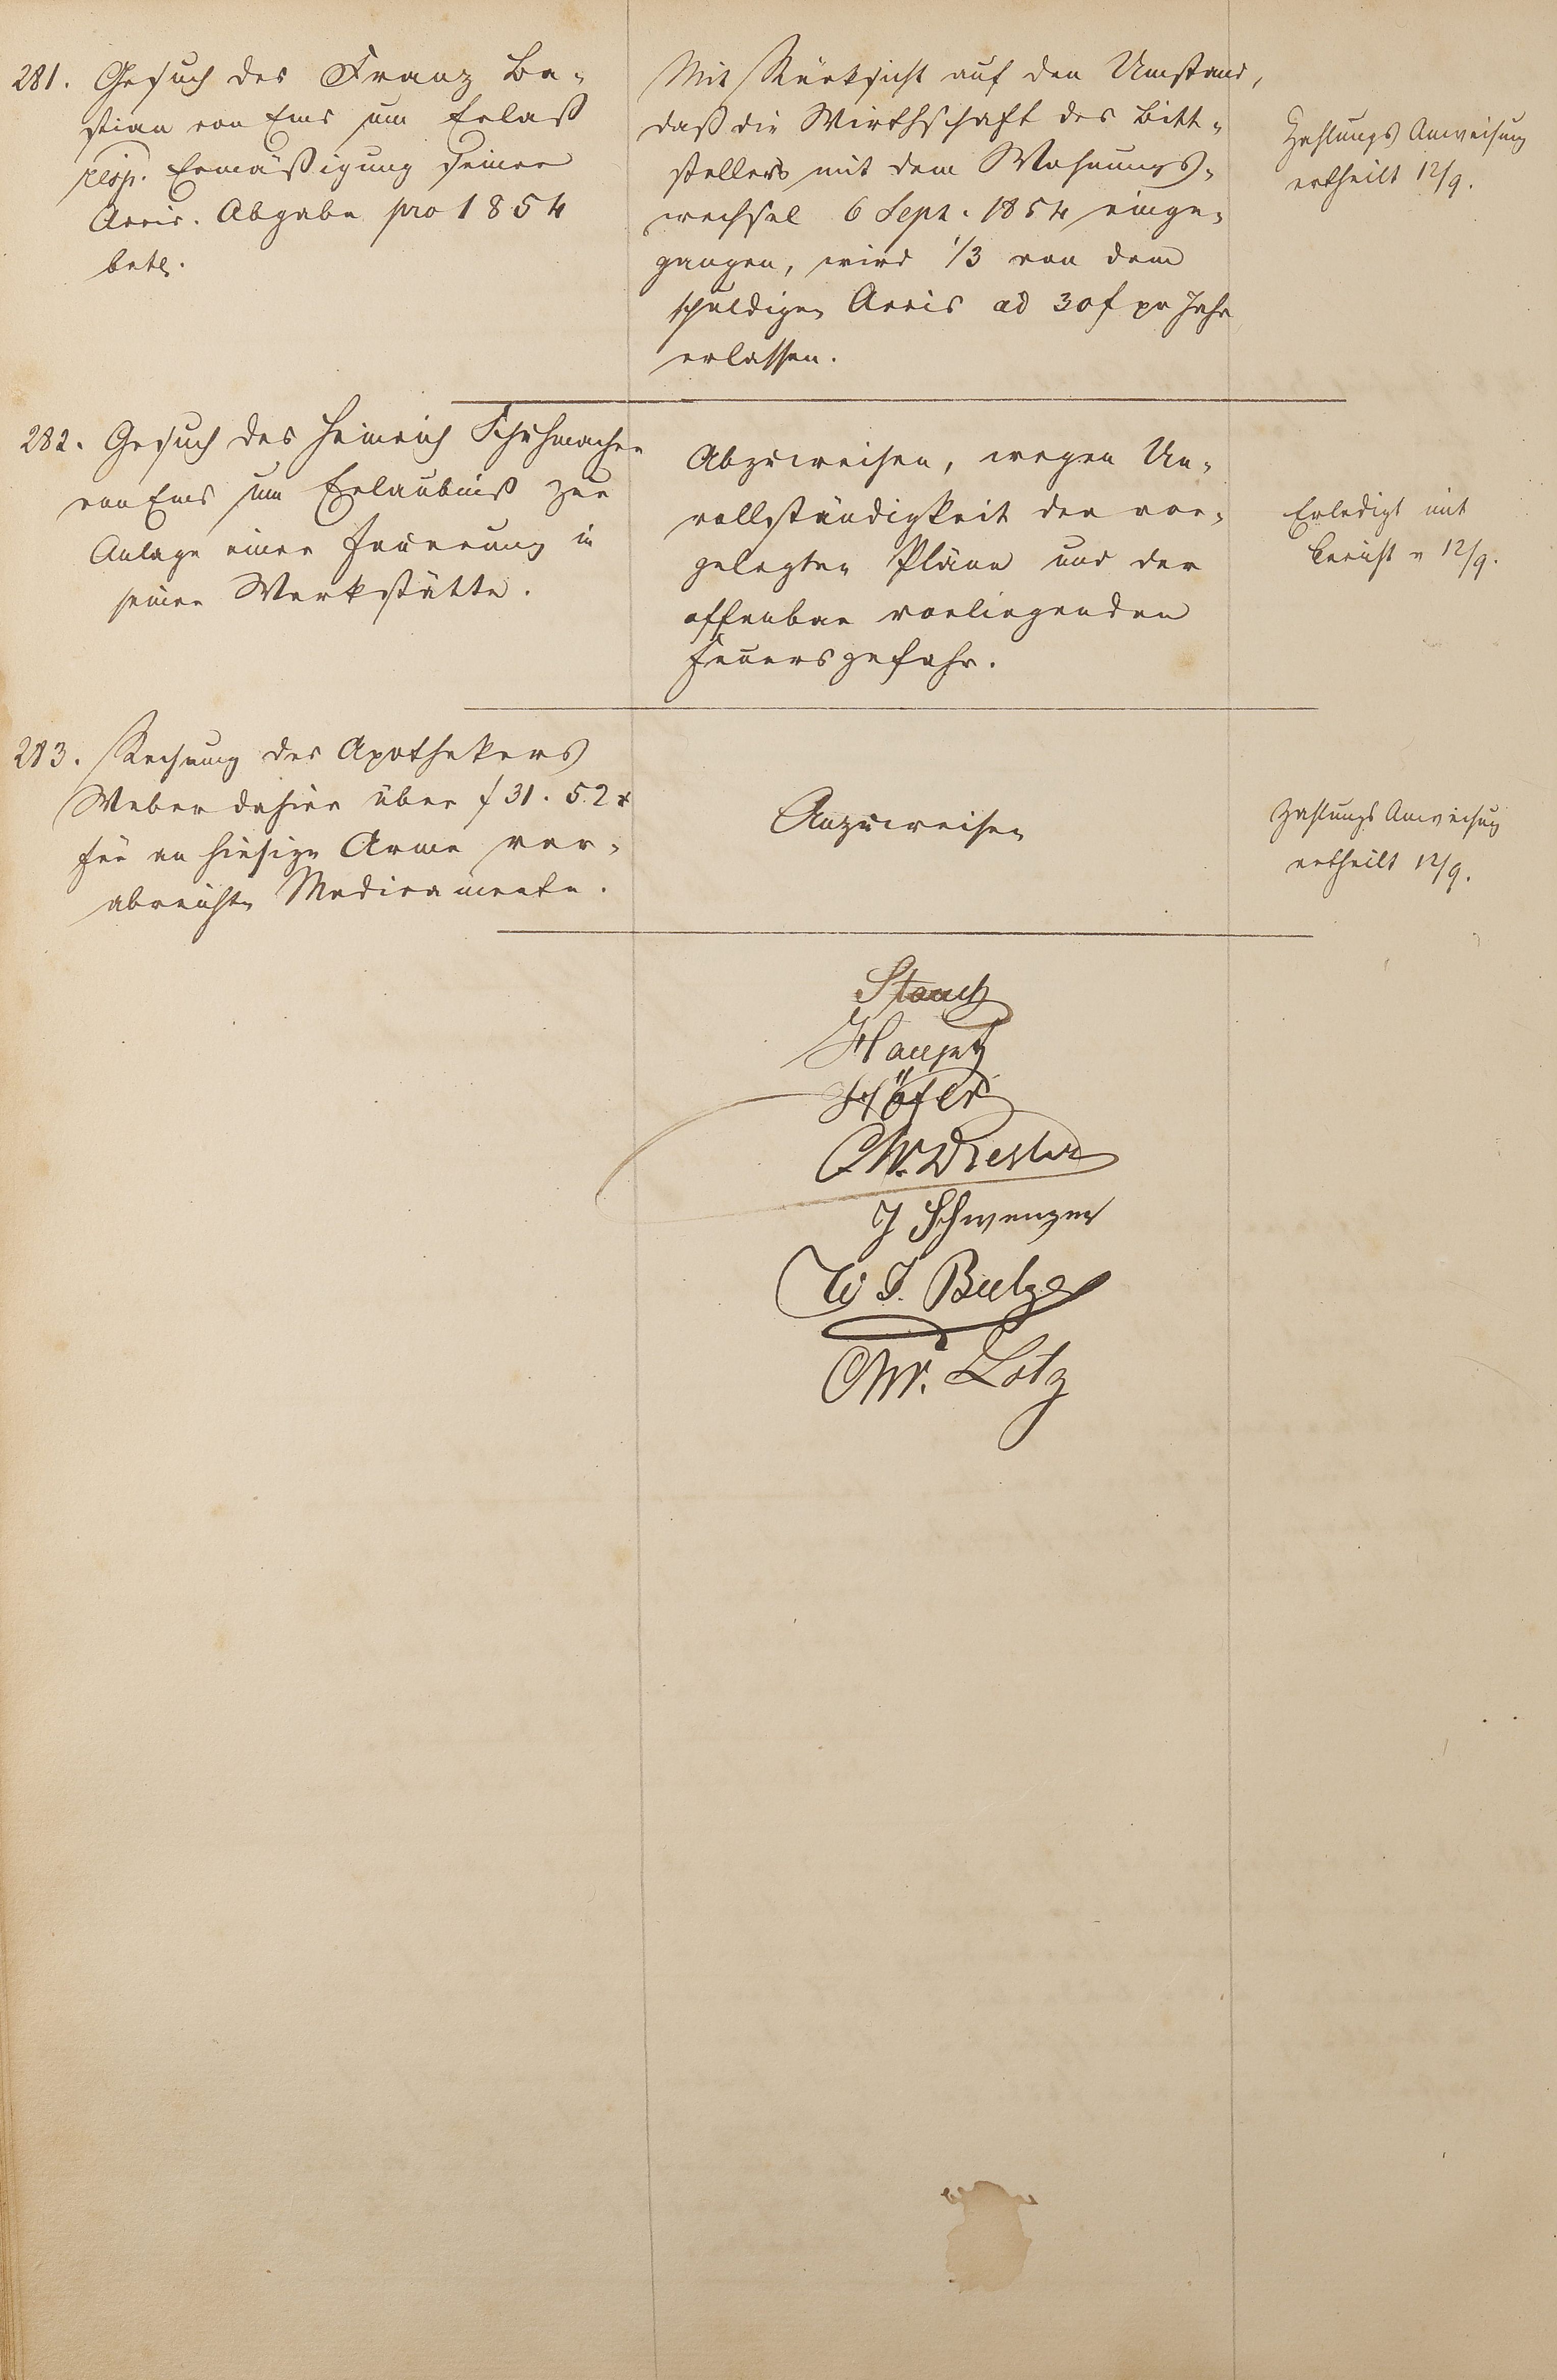 281. Gesuch des Franz Ba-
stian von Ems um Erlaß
resp. Ermäßigung seiner
Accis. Abgabe pro 1854
betr.
Mit Rücksicht auf den Umstand,
daß die Wirthschaft des Bitt-
stellers mit dem Wohnungs-
wechsel 6 Sept. 1854 einge-
gangen, wird 1/3 von dem
schuldigen Accis ad 30 f pr Jahr
erlassen.
Zahlungs Anweisung
ertheilt 12/9.
282. Gesuch des Heinrich Schuhmacher
von Ems um Erlaubniß zur
Anlage einer Feuerung in
seiner Werkstätte.
Abzuweisen, wegen Un-
vollständigkeit der vor-
gelegten Pläne und der
offenbar vorliegenden
Feuersgefahr.
Erledigt mit
Bericht v 12/9.
283. Rechnung des Apothekers
Weber dahier über f 31. 52 x
für an hiesige Arme ver-
abreichte Medicamente.
Anzuweisen
Zahlungs Anweisung
ertheilt 12/9.
Stauch
Haupt
Höfer
Chr. Diester
J Schwenzer
J. Balzer
Chr. Lotz